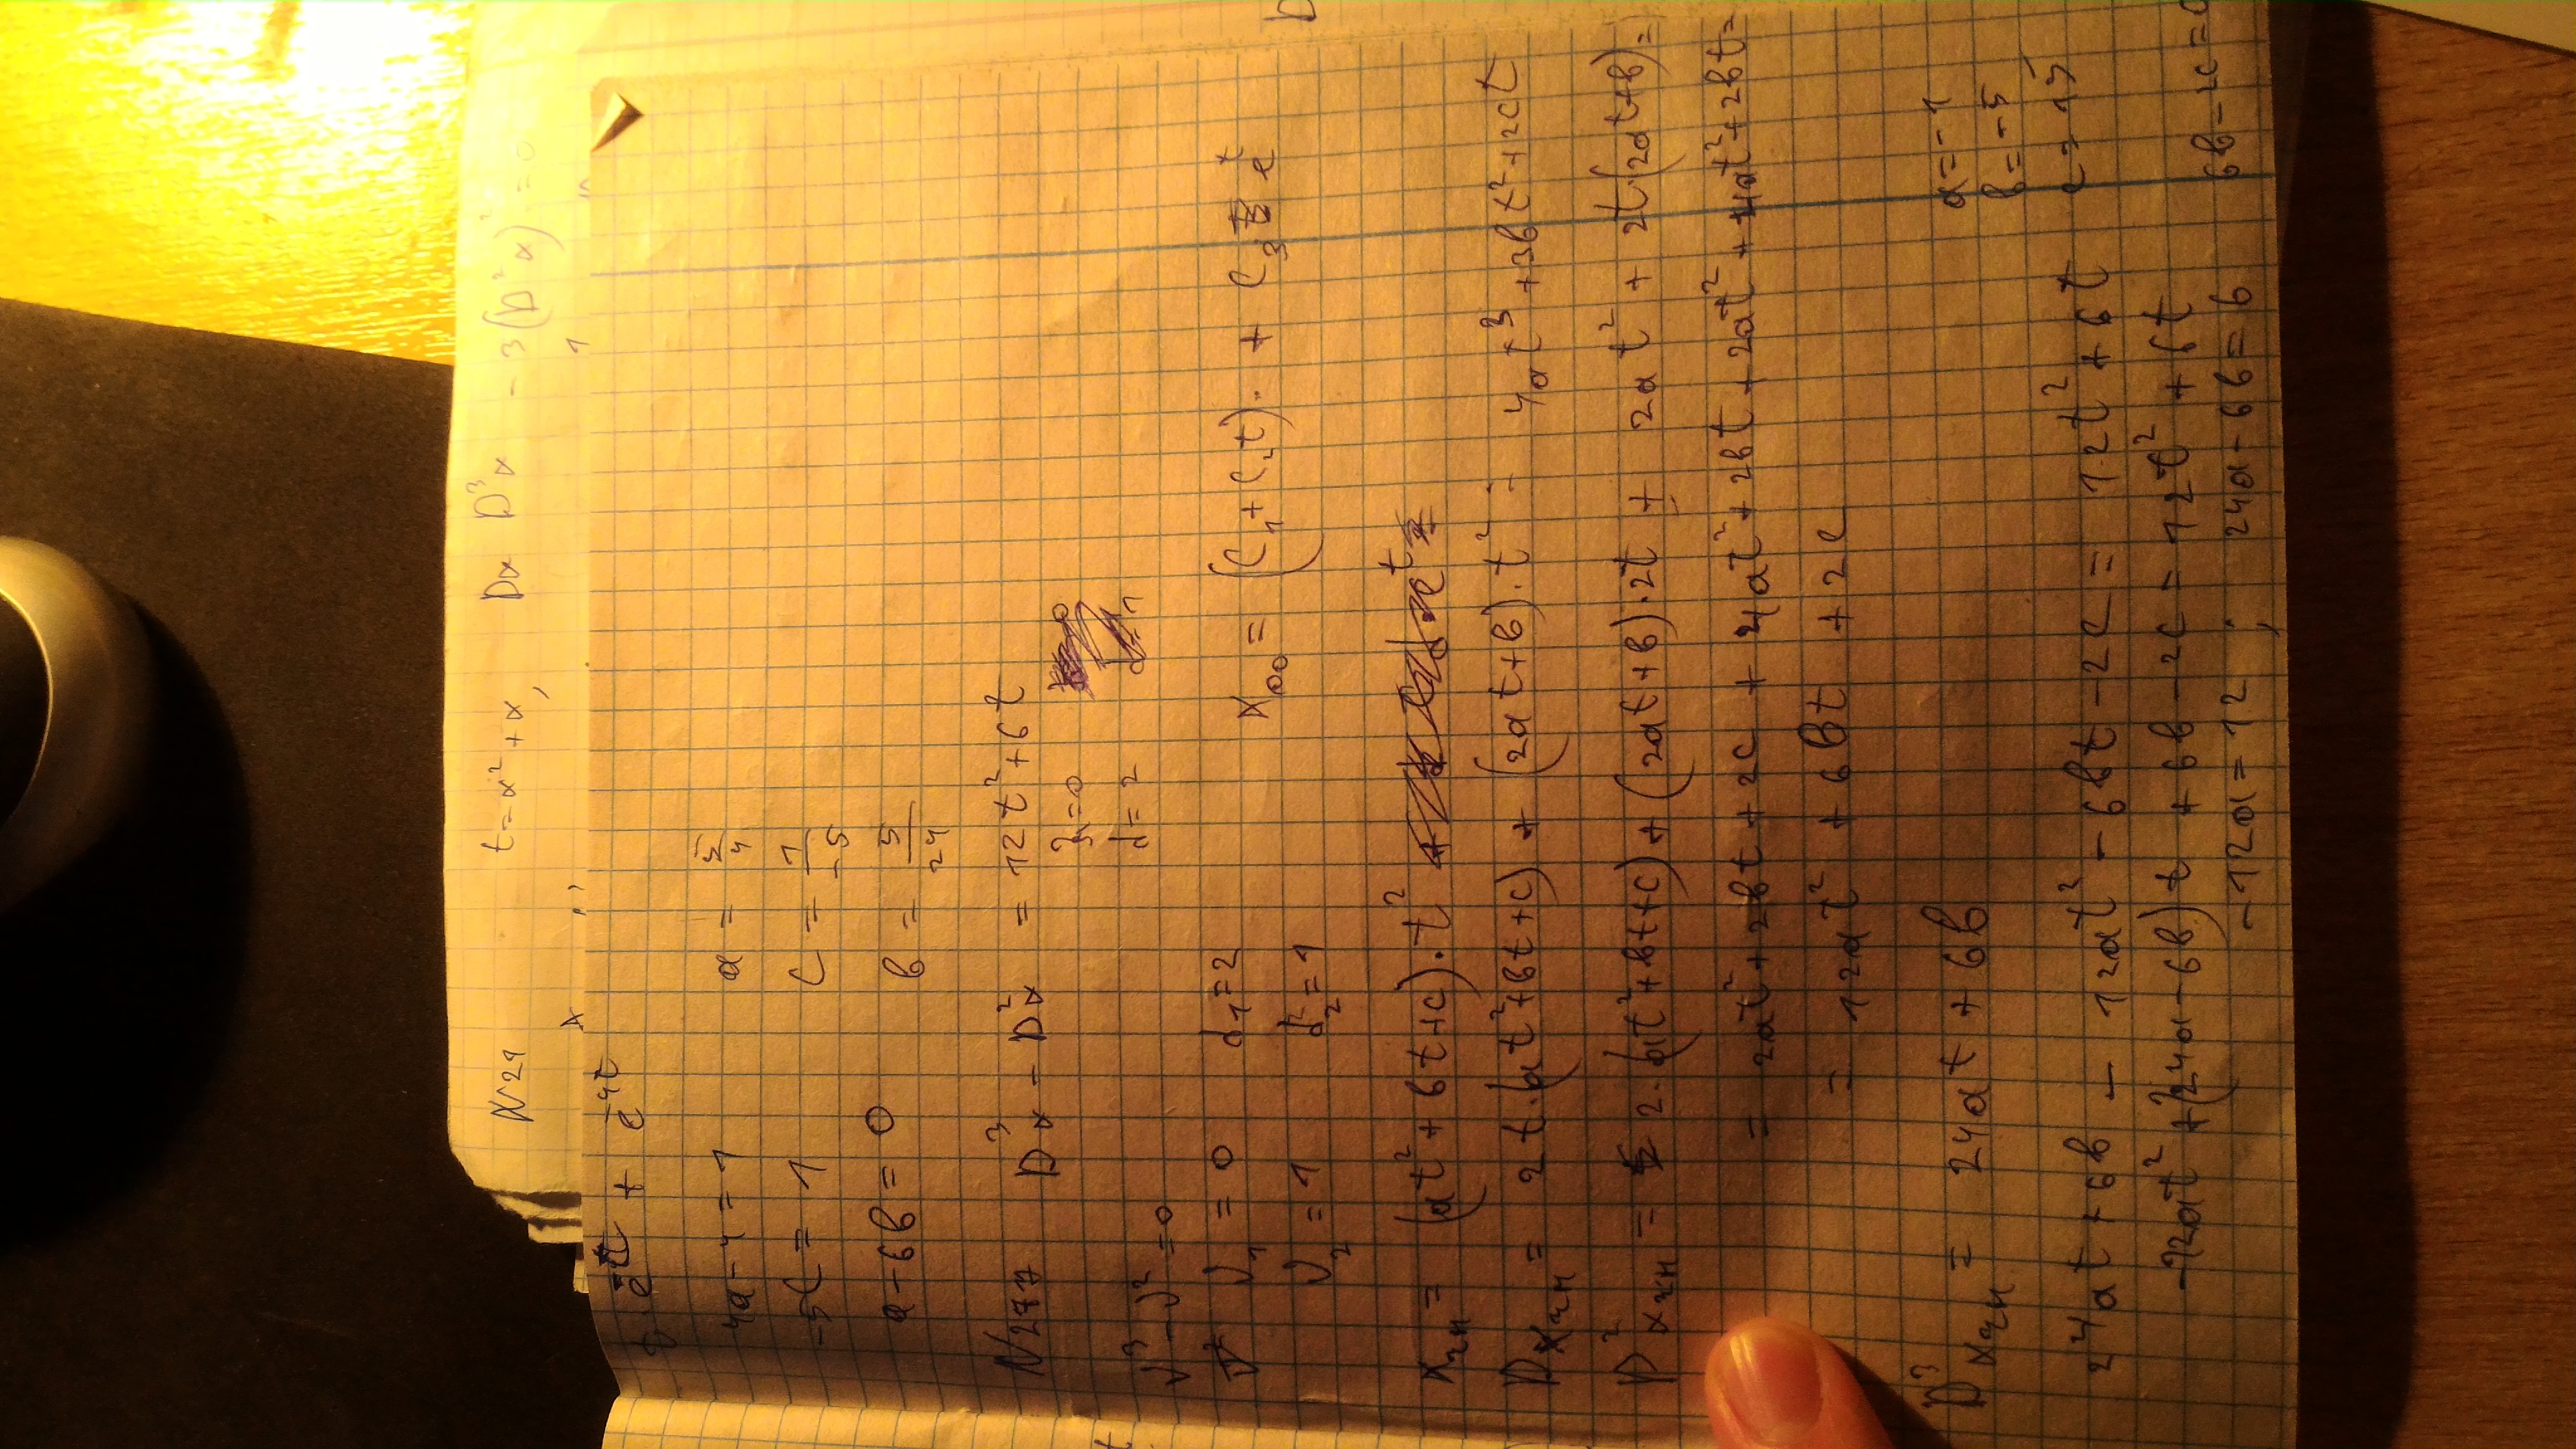 N21 t = x² + x, Dx D³x - 3(D²x)² = 0
e^{-t} + e^{-4t}
4a - 4 = 1 a = 5/4
-5c = 1 c = 1/-5
a - 6b = 0 b = 5/24
N277 D³x - D²x = 12t² + 6t
λ = 0
d = 2
ν³ - ν² = 0
ν₁ = 0 d₁ = 2
x₀₀ = (C₁ + C₂t)· + C₃ e^t
ν₂ = 1 d₂ = 1
xчн = (at² + bt + c)·t²
Dxчн = 2t·(at² + bt + c) + (2at + b)·t² = 4at³ + 3bt² + 2ct
D²xчн = 2·(at² + bt + c) + (2at + b)·2t + 2at² + 2t·(2at + b) =
= 2at² + 2bt + 2c + 4at² + 2bt + 2at² + 4at² + 2bt =
= 12at² + 6bt + 2c
D³xчн = 24at + 6b
a = -1
b = -5
c = -15
24at + 6b - 12at² - 6bt - 2c = 12t² + 6t
-12at² + (24a - 6b)t + 6b - 2c = 12t² + 6t
-12a = 12 ; 24a - 6b = 6 6b - 2c = 0